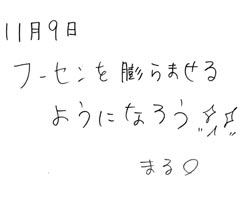 11月9日
フーセンを膨らませる
ようになろう☆☆
"イ"
まる○